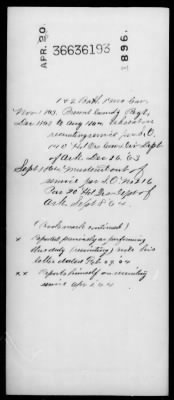 APR. 20.
36636193
1896.
1 & 2 Batt. 1 Mo Cav.
Nov 1863. Present comdg Regt,
Dec 1863 to Aug 1864. Absent on
recruiting service per S.O.
140 Hd Qrs Cav Div Dept
of Ark Dec 16. 63
Sept 1864 Mustered out of
service per S.O. No 216
Par 20 Hd Qrs Dept of
Ark Sept 8 64.
(Bookmark continued)
x Reported, previously as performing
this duty (recruiting) vide his
letter dated Feby 29 '64
x x Reports himself on recruiting
service Apr 2 64